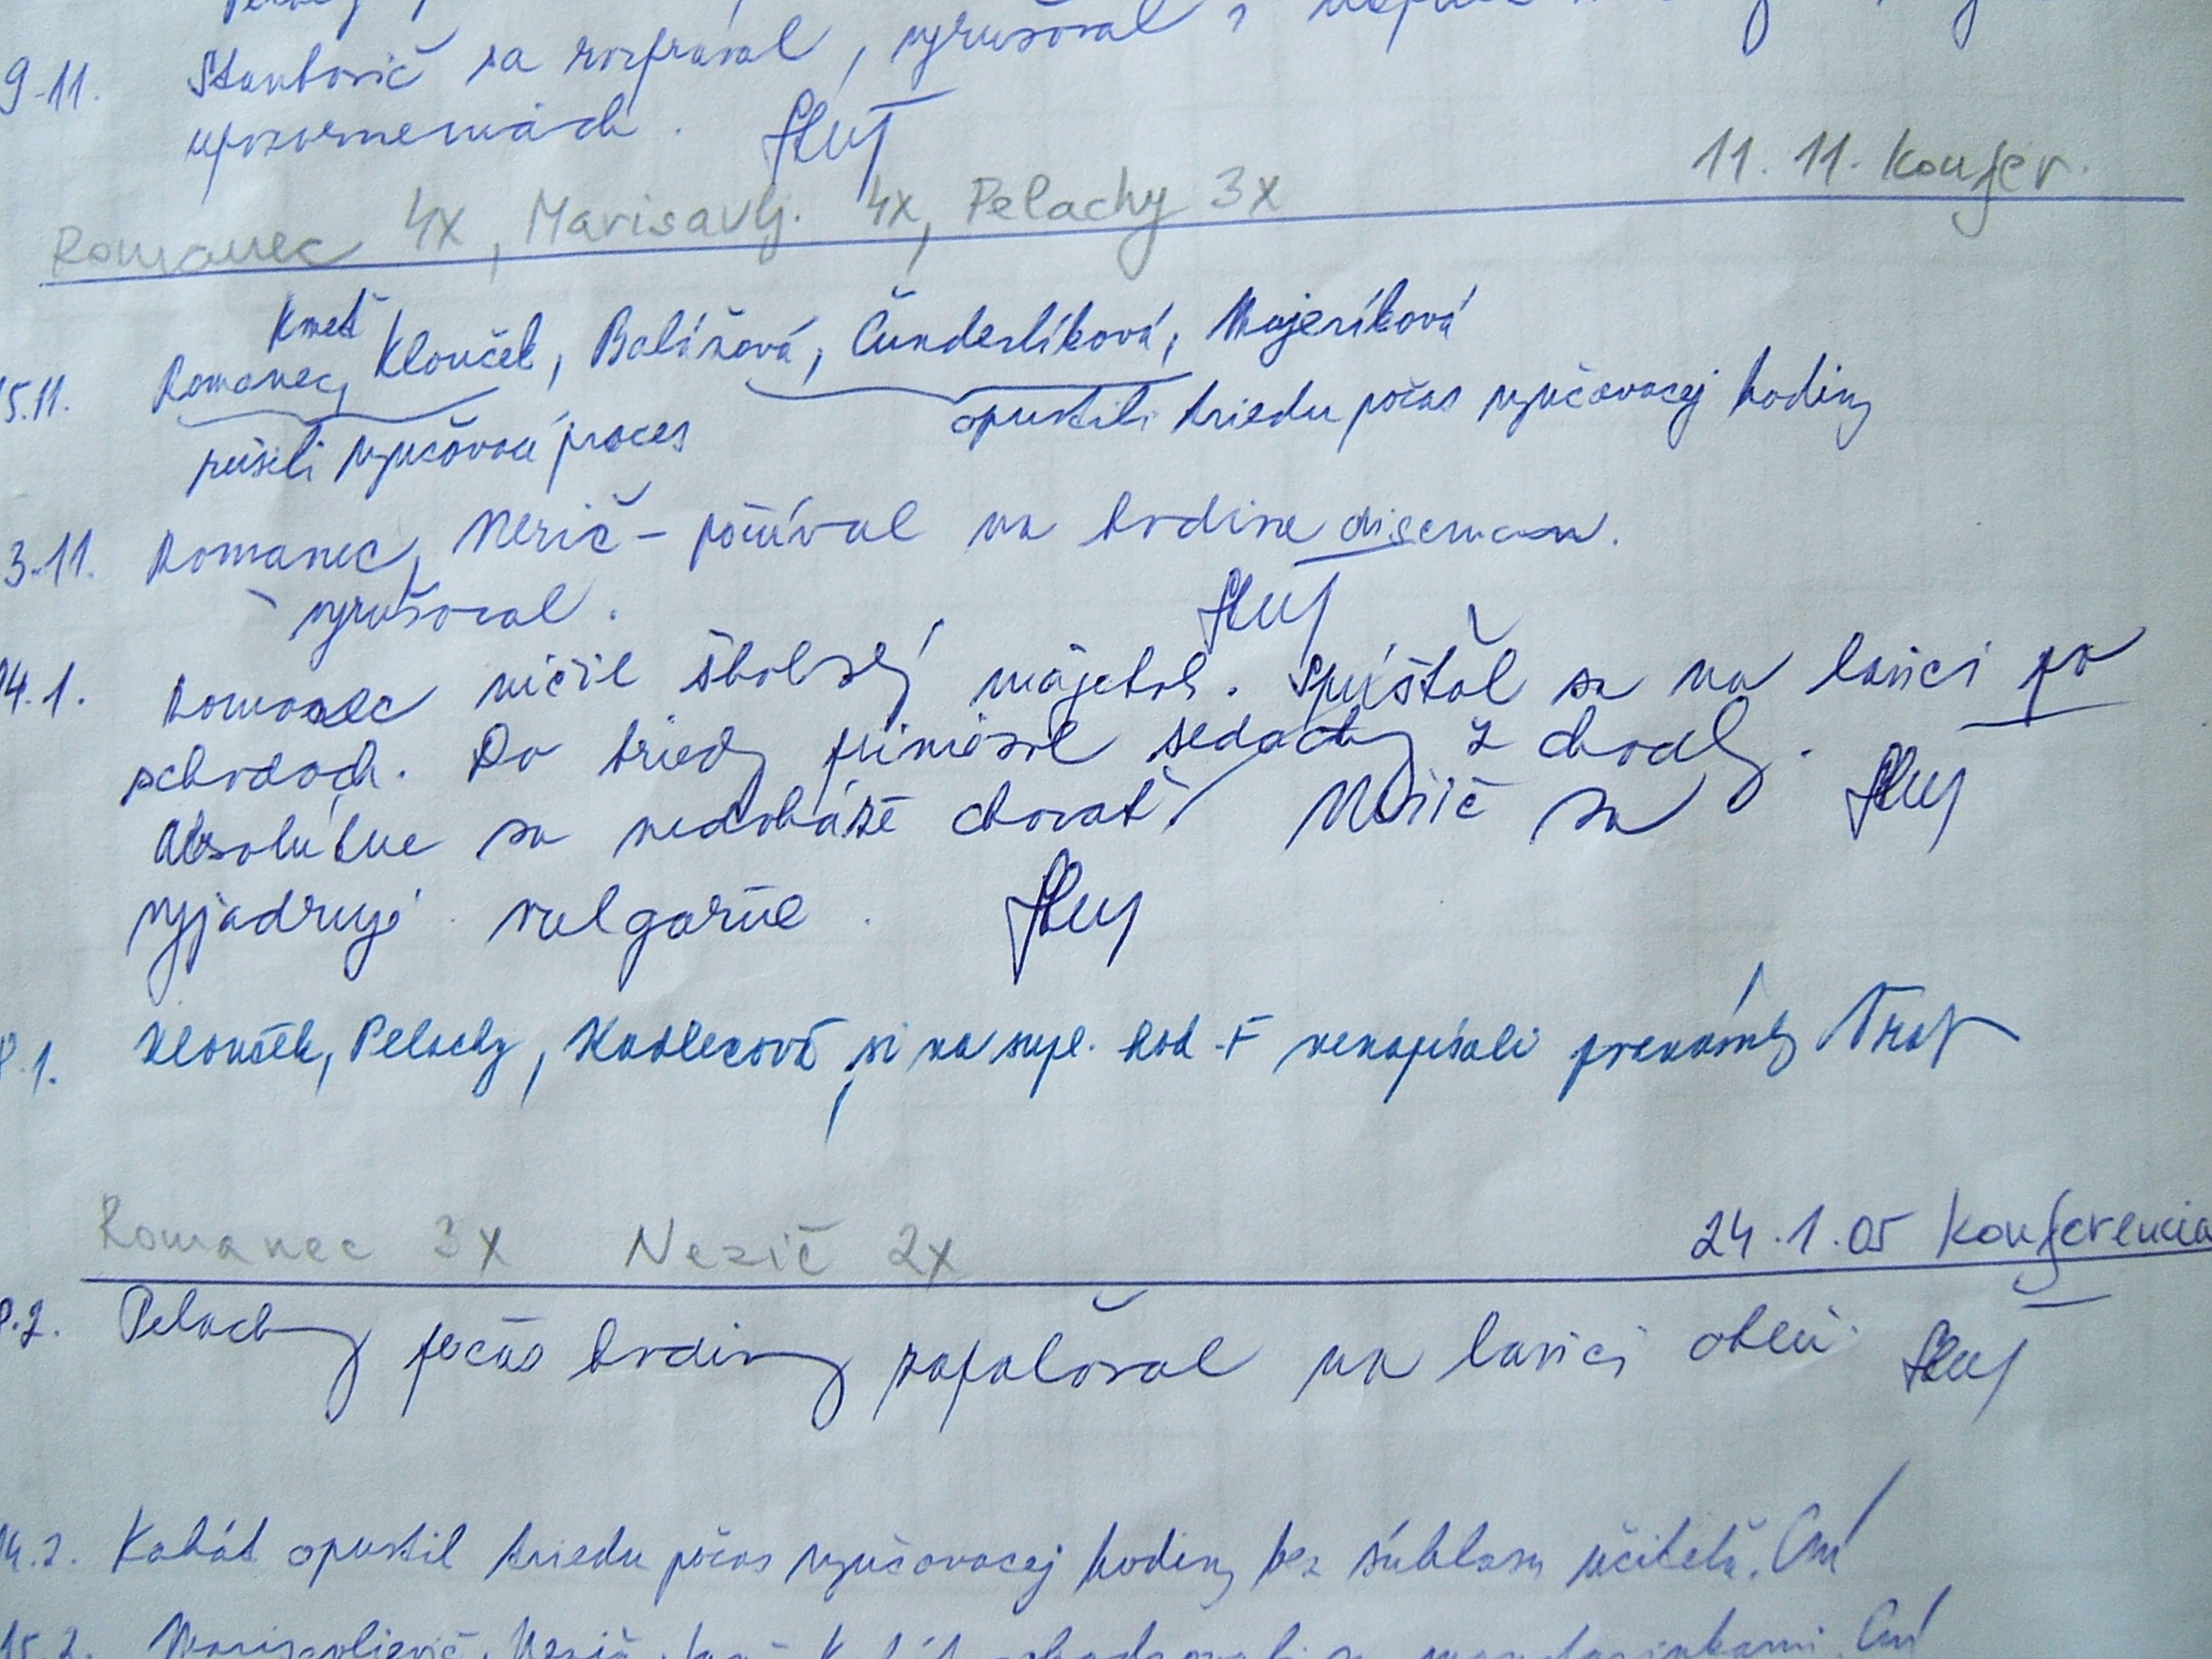 9.11. Stankovič sa rozprával, vyrušoval
upozorneniach.
11.11. Konfer.
Romanec 4x, Marisavlj. 4x, Pelachy 3x
Kmeť
15.11. Romanec, Klouček, Balážová, Čunderlíková, Majeríková
rušili vyučovací proces opustili triedu počas vyučovacej hodiny
3.11. Romanec, Nezič - počúval na hodine discman.
vyrušoval.
14.1. Romanec ničil školský majetok. Spúšťal sa na lavici po
schodoch. Do triedy priniesol sedačky z chodby.
Absolútne sa nedokáže chovať! Nezič sa
vyjadruje vulgárne.
.1. Klouček, Pelachy, Kadlecová si na supl. hod. F nenapísali poznámky
Romanec 3x Nezič 2x 24.1.05 Konferencia
.2. Pelachy počas hodiny zapaľoval na lavici oheň.
14.2. Kabát opustil triedu počas vyučovacej hodiny bez súhlasu učiteľa.
15.2. Marisavljevič, Nezič, mandarinkami.